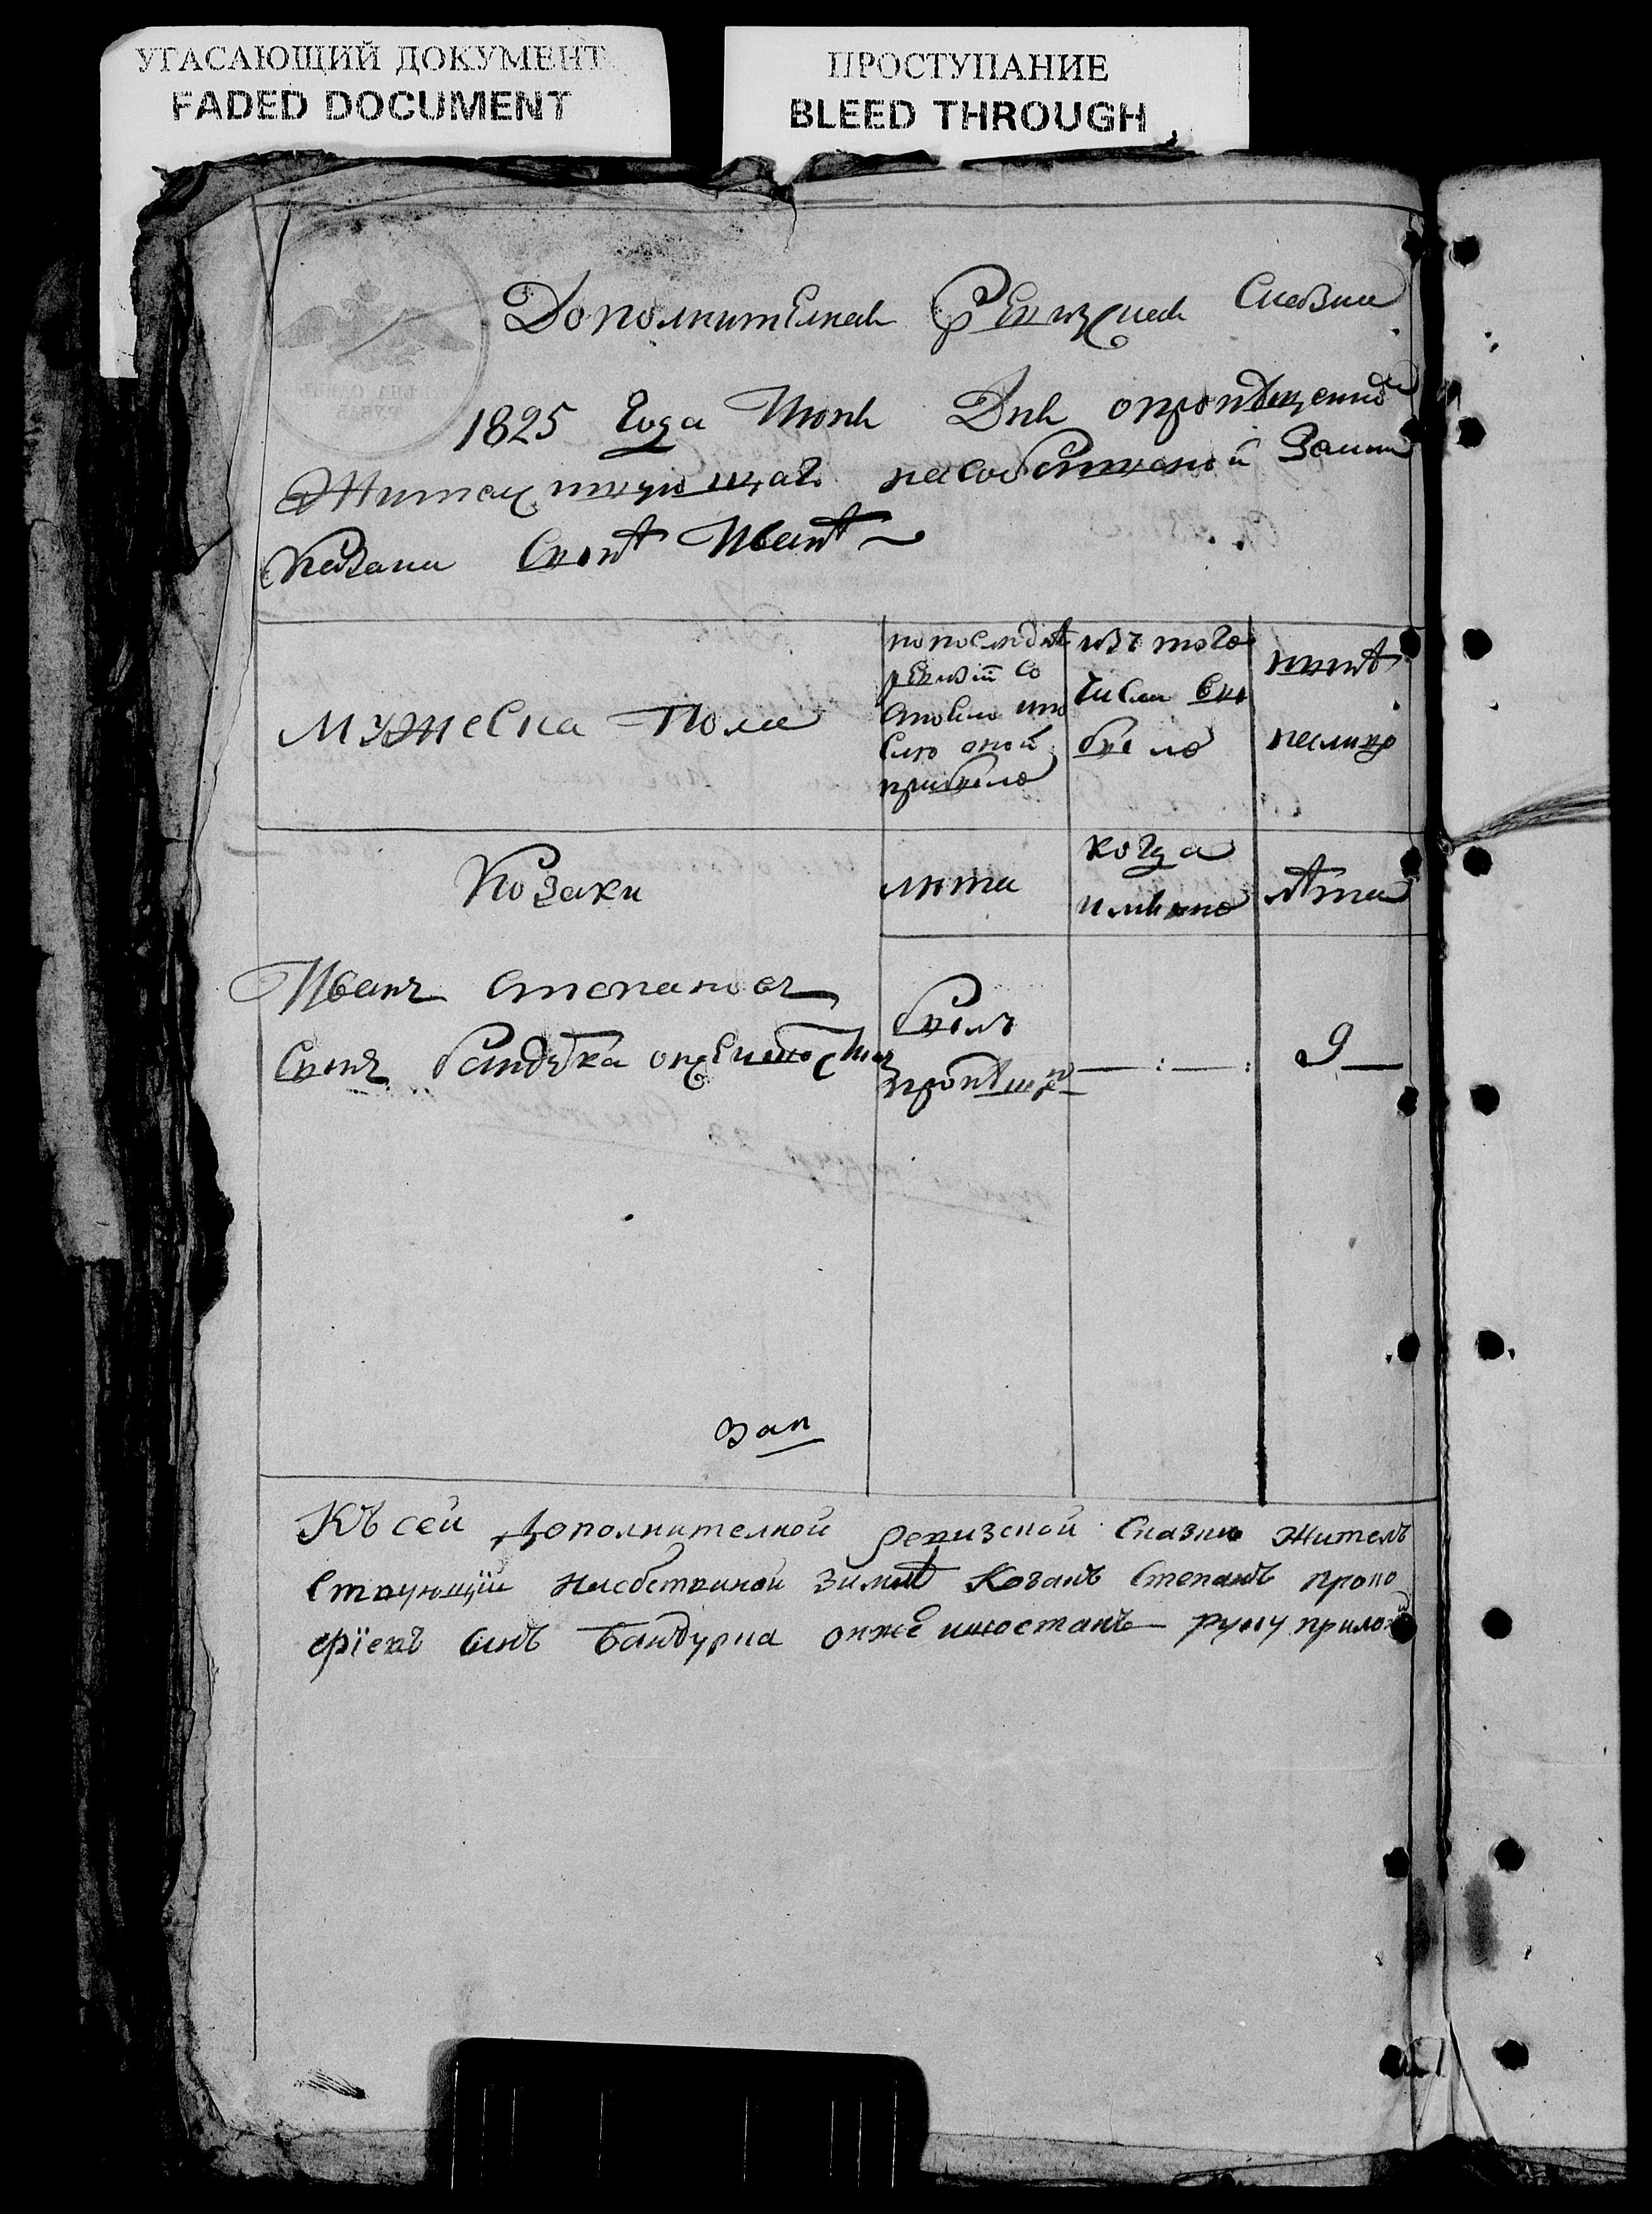 УГАСАЮЩИЙ ДОКУМЕНТ
FADED DOCUMENT
ПРОСТУПАНИЕ
BLEED THROUGH
Дополнителная Ревизская Сказка
1825 Года Июня Дня опропѣщенно
Жителствующаго насобственойЗемли
Козака Сынѣ Иванѣ
Мужеска Пола
попоследнѣ
ревизіи со
стояло ипо
слю оной
прибыло
изъ того
числа вы
было
нынѣ
налицо
Козаки
люта
когда
имянно
лѣта
Иванъ Степановъ
Сынъ бандурка онжеиностан
Былъ
пропѣщен
9
зап
Къ сей дополнителной ревизской Сказки жителъ
ствующїи насобственой Зимлѣ Козакъ Степанъ проко
фїевъ синъ Бандурка онже иностанъ руку прилож